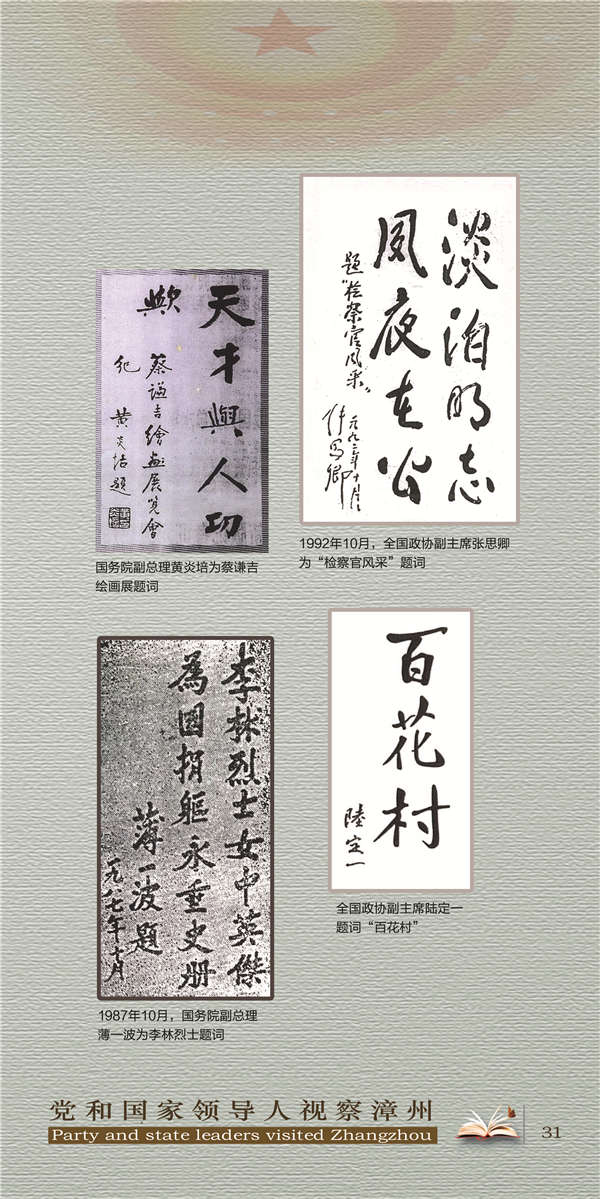 天才與人功
歟
蔡謙吉繪畫展覽會
紀
黃炎培題
国务院副总理黄炎培为蔡谦吉
绘画展题词
淡泊明志
夙夜在公
题“检察官风采”
一九九二年十月
张思卿
1992年10月，全国政协副主席张思卿
为“检察官风采”题词
李林烈士女中英傑
為國捐軀永垂史册
薄一波題
一九八七年十月
1987年10月，国务院副总理
薄一波为李林烈士题词
百花村
陸定一
全国政协副主席陆定一
题词“百花村”
党和国家领导人视察漳州
Party and state leaders visited Zhangzhou
31